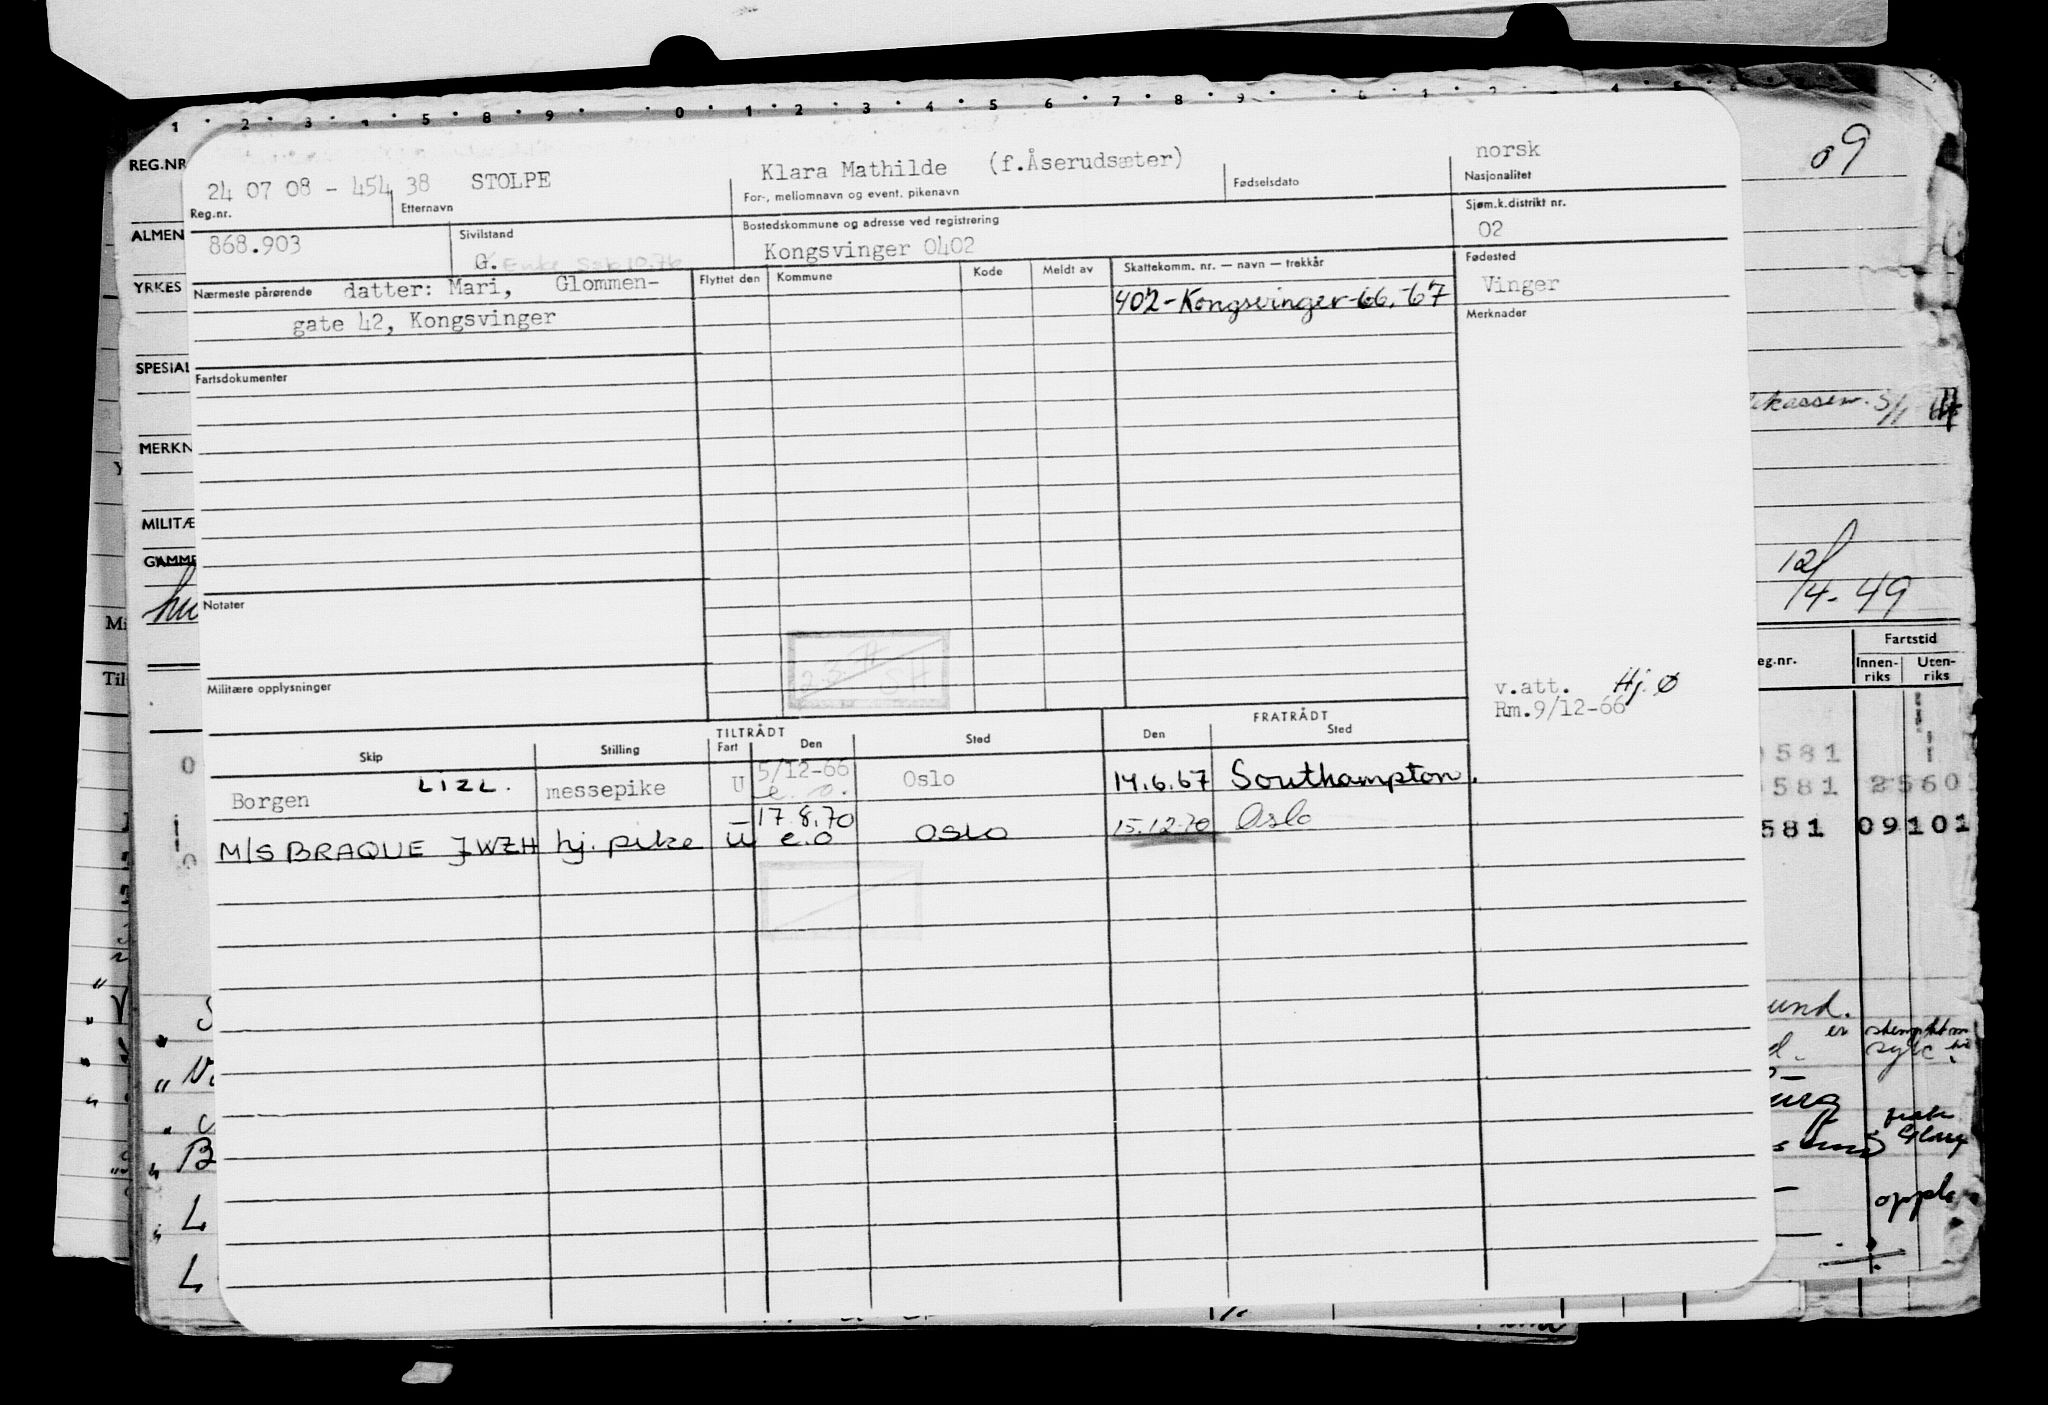 1 2 3 4 5 8 9 0 1 2 3 4 5 6 7 8 9 0 1 2 3 4 5 6
REG.NR
09
24 07 08 - 454 38 STOLPE Klara Mathilde (f.Åserudsæter) norsk
Reg.nr. Etternavn For-, mellomnavn og event. pikenavn Fødselsdato Nasjonalitet
ALMEN
868.903 Sivilstand Bostedskommune og adresse ved registrering Sjøm.k.distrikt nr.
G. Enke Kongsvinger 0402 02
YRKES
Nærmeste pårørende datter: Mari, Glommen- Flyttet den Kommune Kode Meldt av Skattekomm. nr. — navn — trekkår Fødested
gate 42, Kongsvinger 402-Kongsvinger-66,-67 Vinger
Merknader
SPESIAL
Fartsdokumenter
tekassen. 5/1
MERKN
MILITÆ
GAMME
12/4-49
Notater
Mi
Fartstid
eg.nr. Innen-riks Uten-riks
Til
Militære opplysninger
v.att. Hj. Ø
Rm.9/12-66
TILTRÅDT FRATRÅDT
Skip Stilling Fart Den Sted Den Sted
581
Borgen LIZL. messepike U 5/12-66 e.o. Oslo 14.6.67 Southampton.
581 2560
M/S BRAQUE JWZH hj. pike U 17.8.70 e.o OSLO 15.12.70 Oslo
581 09101
und.
er
oppl.
B
L
L